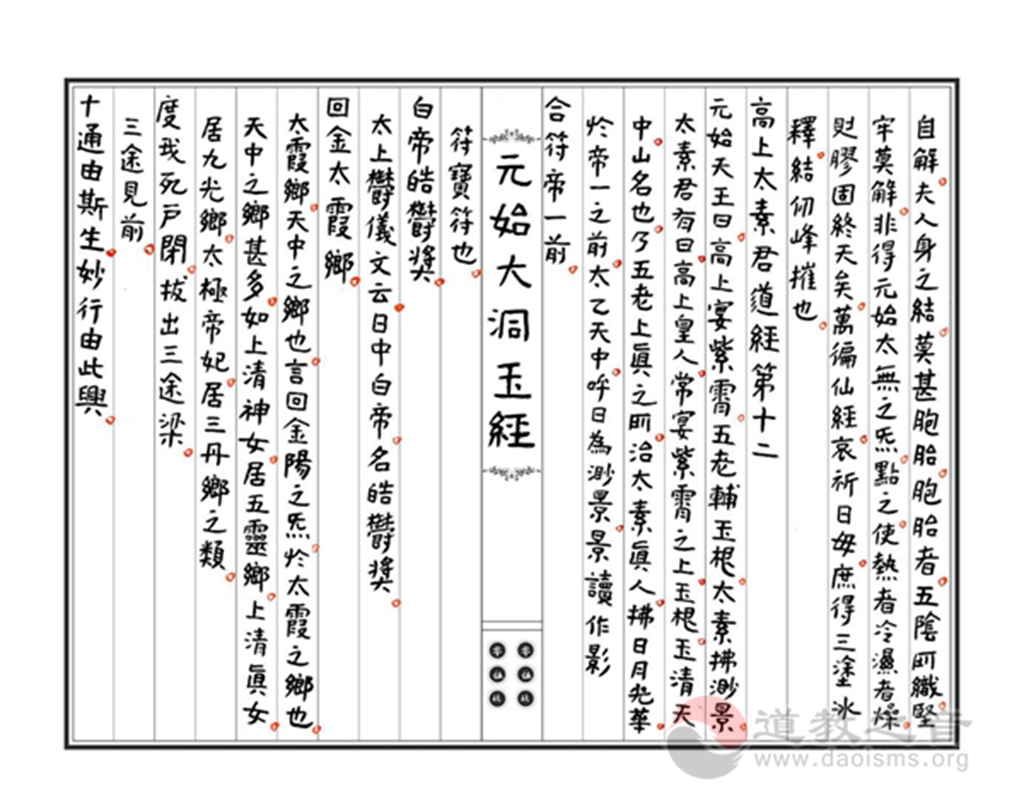 自解夫人身之結莫甚胞胎胞胎者五陰所織堅
牢莫解非得元始太無之炁點之使熱者冷濕者燥
則膠固終天矣萬徧仙經哀祈日毋庶得三塗冰
釋結仞峰摧也
高上太素君道經第十二
元始天王曰高上宴紫霄五老輔玉根太素拂渺景
太素君有曰高上皇人常宴紫霄之上玉根玉清天
中山名也乃五老上真之所治太素真人拂日月光華
於帝一之前太乙天中呼日為渺景景讀作影
合符帝一前
元始大洞玉經
符寶符也
白帝皓鬱將
太上鬱儀文云日中白帝名皓鬱將
回金太霞鄉
太霞鄉天中之鄉也言回金陽之炁於太霞之鄉也
天中之鄉甚多如上清神女居五靈鄉上清真女
居九光鄉太極帝妃居三丹鄉之類
度我死戶閉拔出三途梁
三途見前
十通由斯生妙行由此興
道教之音
www.daoisms.org